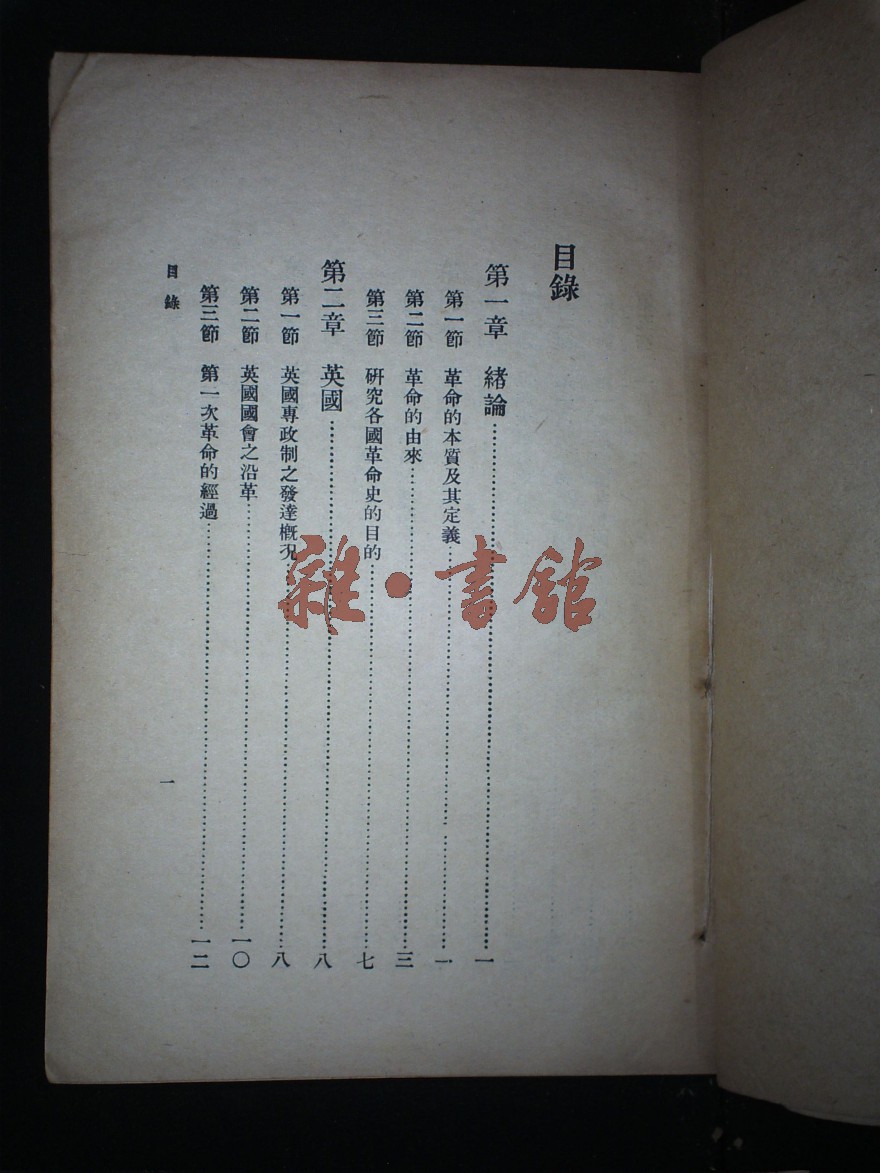 目錄
第一章 緒論……一
第一節 革命的本質及其定義……一
第二節 革命的由來……三
第三節 研究各國革命史的目的……七
第二章 英國……八
第一節 英國專政制之發達概況……八
第二節 英國國會之沿革……一〇
第三節 第一次革命的經過……一二
目錄
一
雜·書館